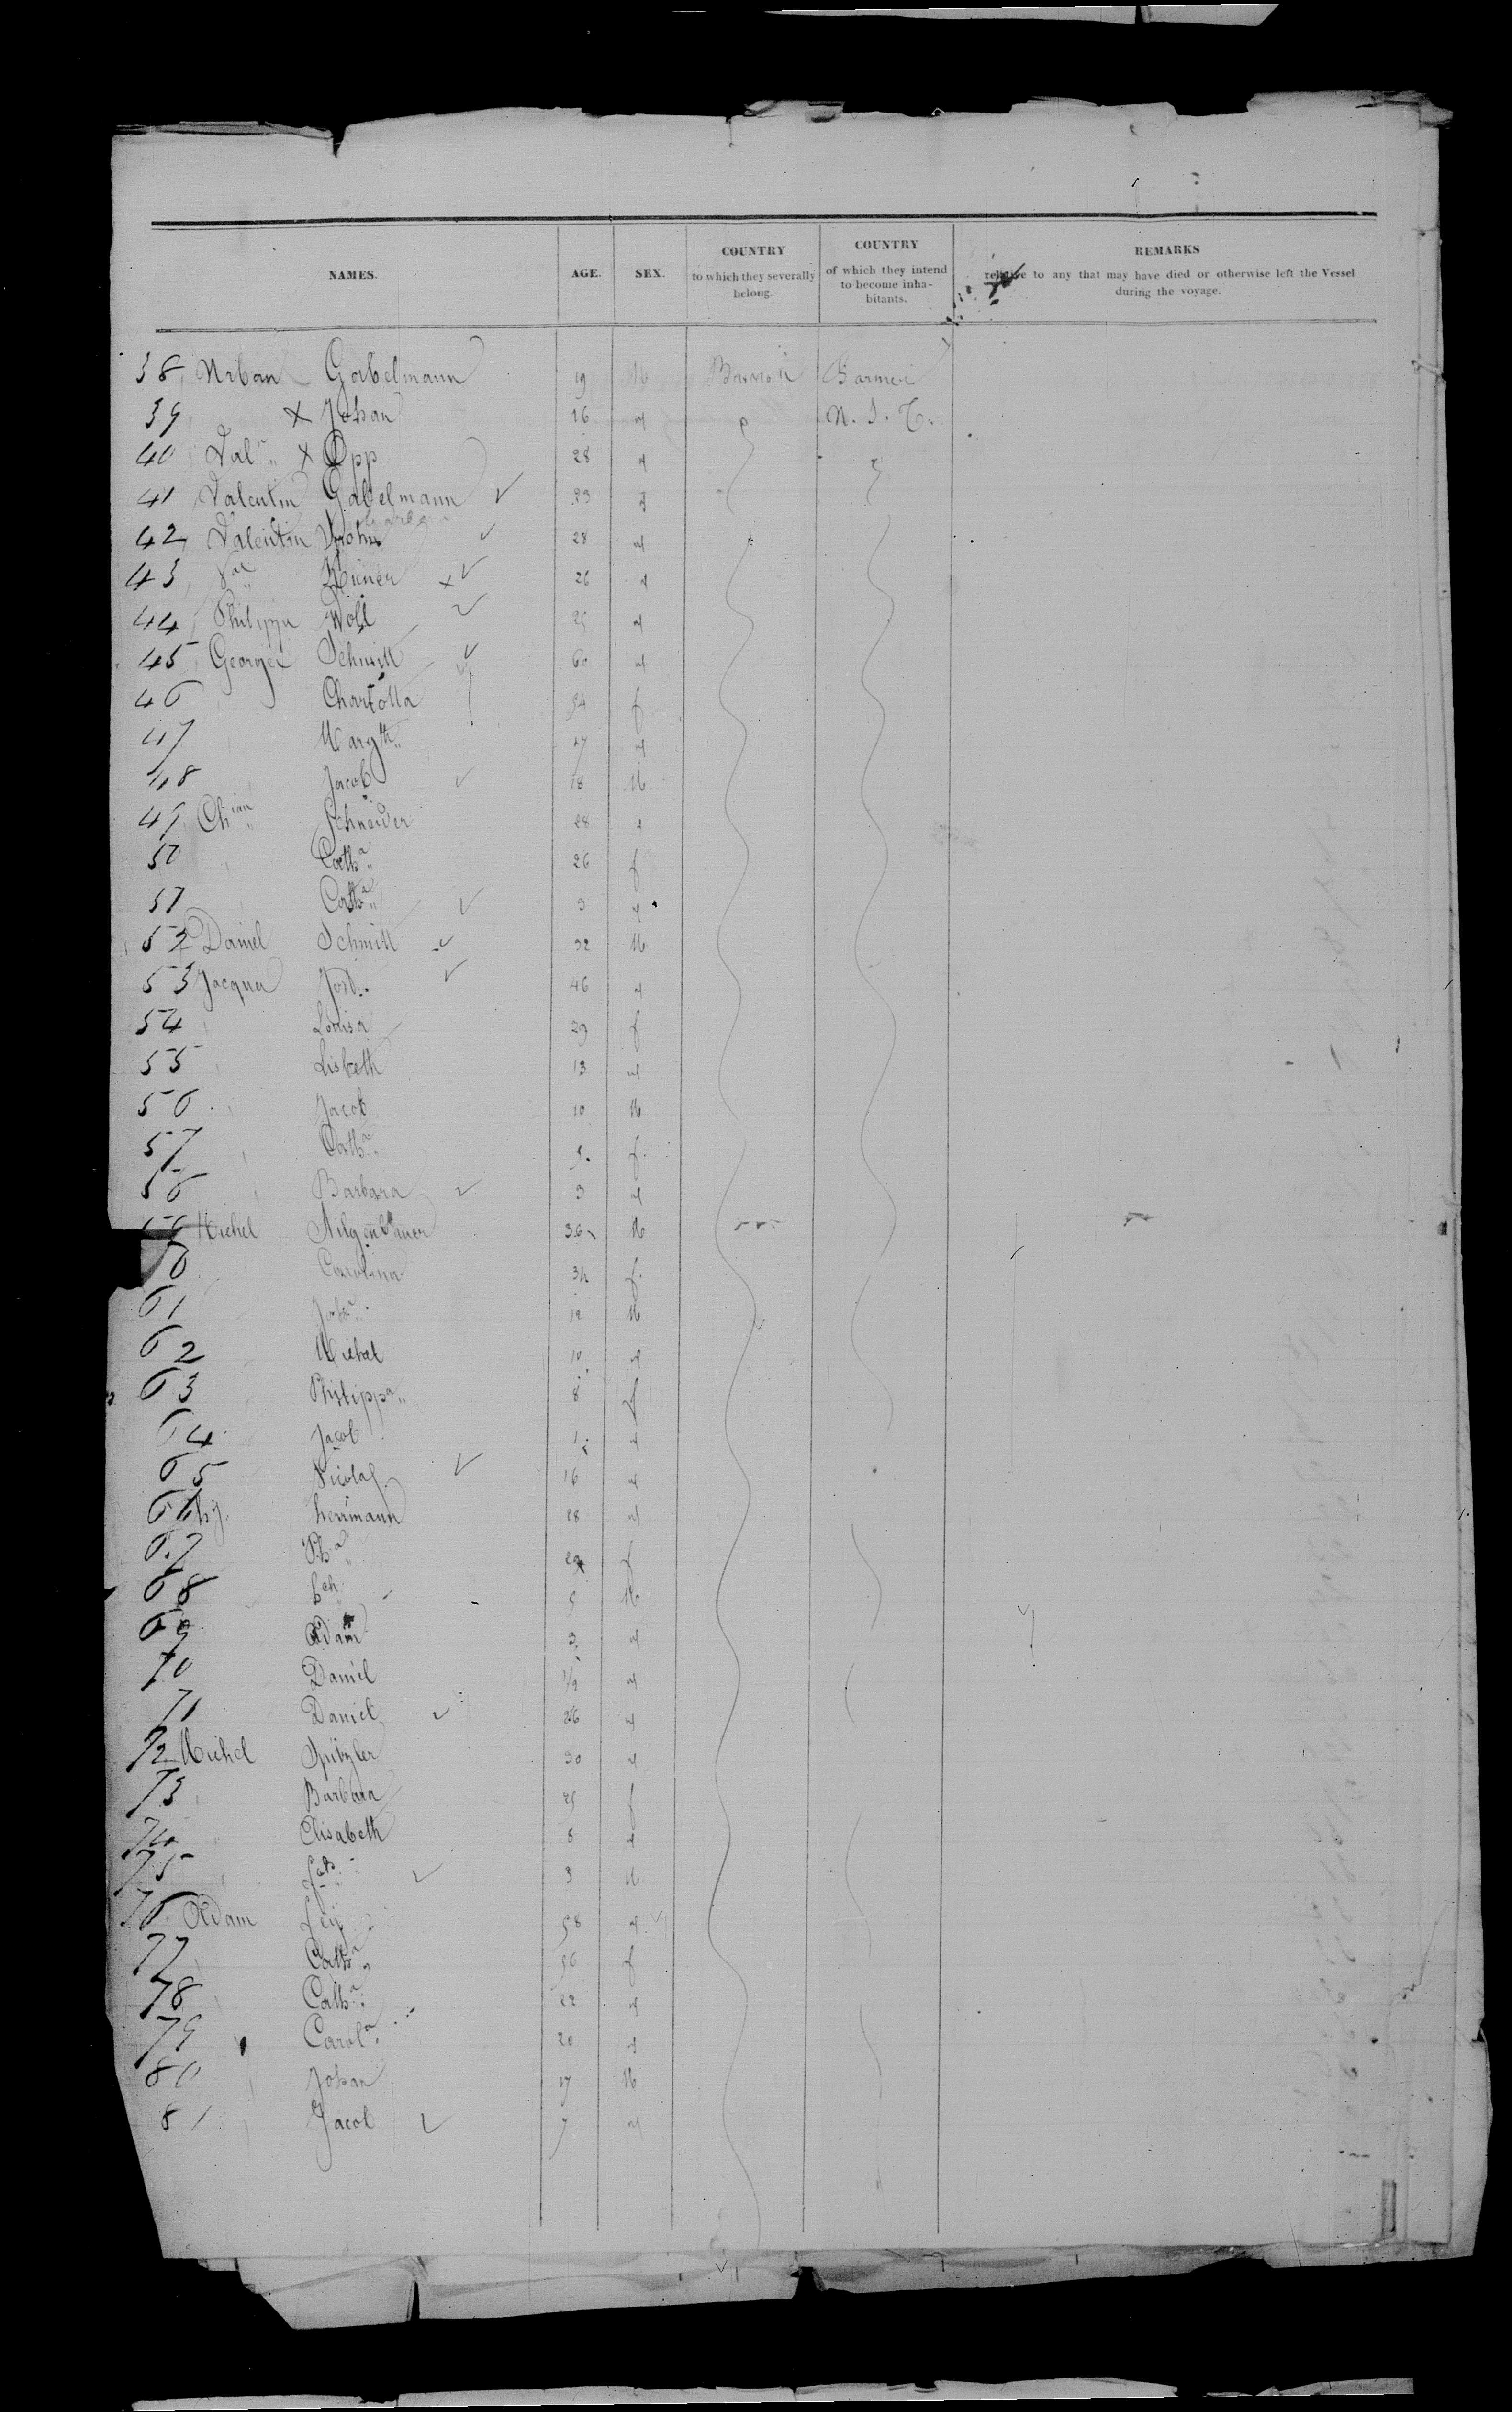 NAMES. AGE. SEX. COUNTRY to which they severally belong. COUNTRY of which they intend to become inhabitants. REMARKS relative to any that may have died or otherwise left the Vessel during the voyage.
38 Urban Gabelmann 19 M Farmer
39 x Johan 16 " N. S. C.
40 Val.n x Opp 28 "
41 Valentin Gabelmann 23 "
42 Valentin 28 "
43 26 "
44 Philipp Woll 25 "
45 George Schmitt 60 "
46 Charlotta 54 f
47 Marg.th 17 "
48 Jacob 18 M
49 Ch.ian Schneider 28 "
50 Cath.a 26 f
51 Cath.a 3 "
52 Daniel Schmitt 32 M
53 Jacques Jost 46 "
54 Louisa 29 f
55 Lisbeth 13 "
56 Jacob 10 M
57 Cath.a 5 f
58 Barbara 3 "
59 Michel 36 M
60 Carolina 34 f
61 Joh.n 12 M
62 Michel 10 "
63 Philipp.a 8 f
64 Jacob 1 "
65 Nicolas 16 "
66 Herrmann 28 "
67 Ph.a f
68 5 M
69 Adam 3 "
70 Daniel 1/2 "
71 Daniel 26 "
72 Michel Spitzler 30 "
73 Barbara 25 f
74 Elisabeth 8 "
75 3 M
76 Adam Fey 58 "
77 Cath.a 56 f
78 Cath.a 22 "
79 Carol.a 20 "
80 Johan 17 M
81 Jacob 7 "